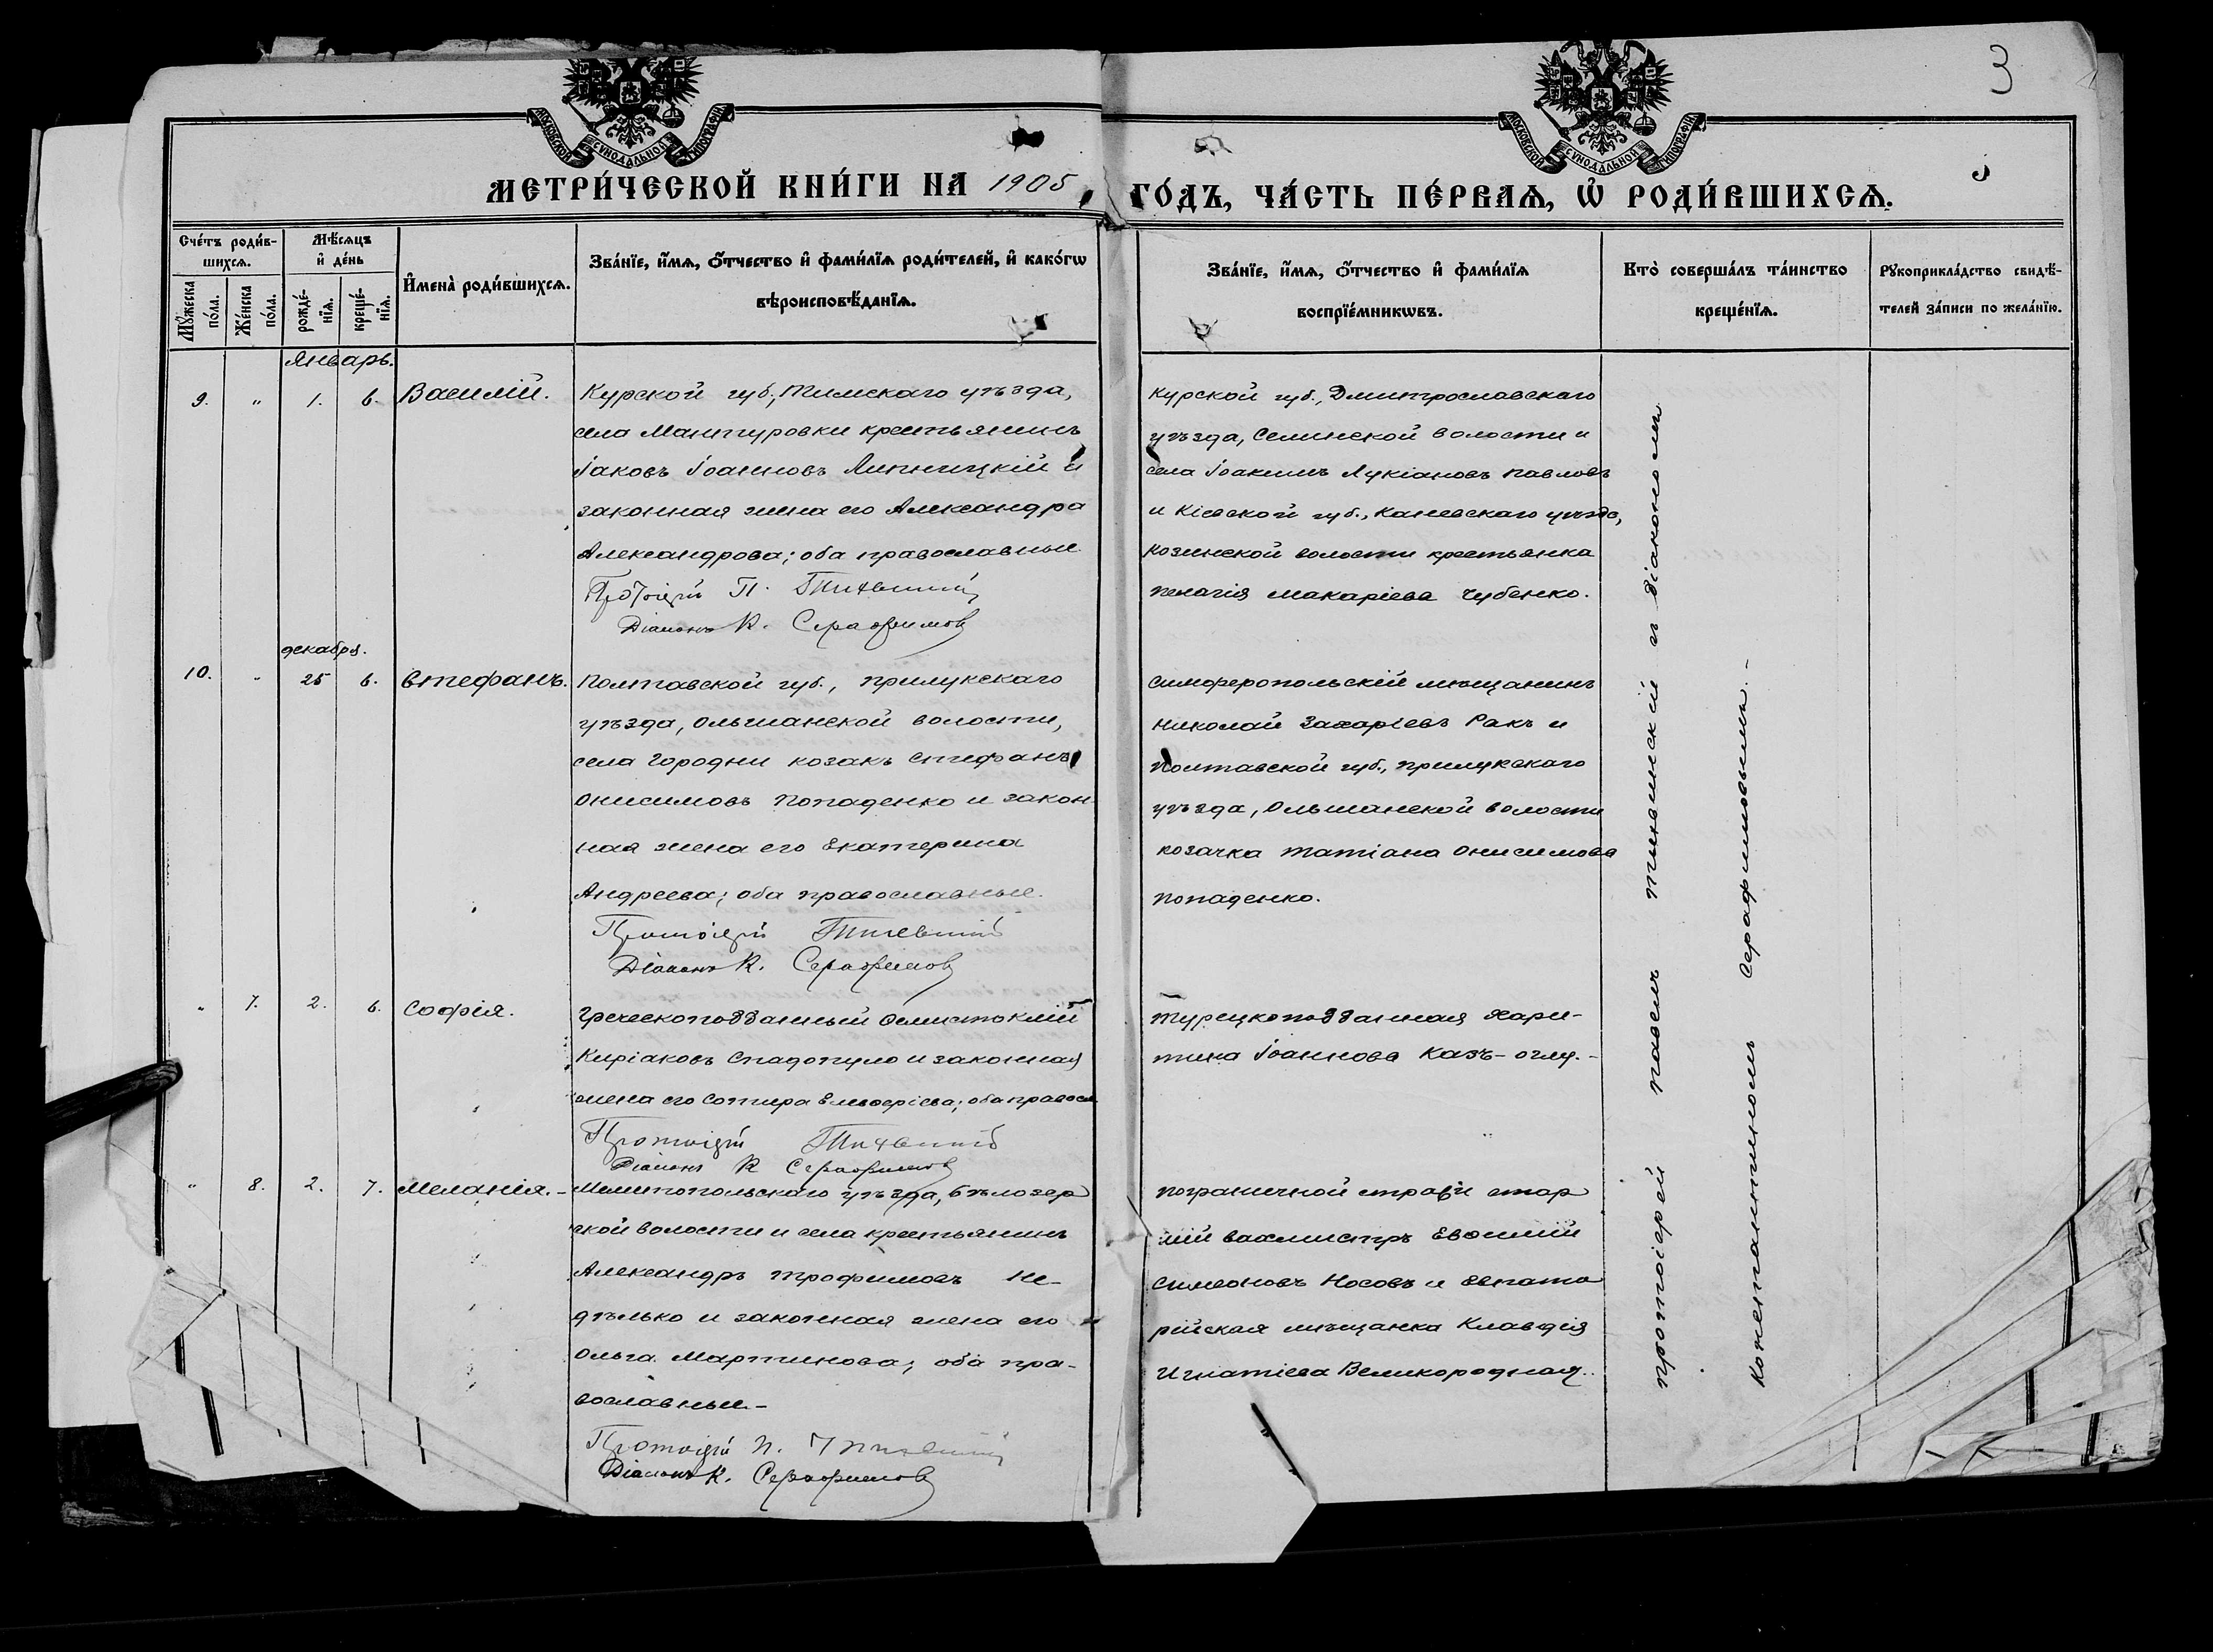 3
МОСКОВСКОЙ СѴНОДАЛЬНОЙ ТИПОГРАФІИ
МОСКОВСКОЙ СѴНОДАЛЬНОЙ ТИПОГРАФІИ
МЕТРИ́ЧЕСКОЙ КНИ́ГИ НА 1905 ГО́ДЪ, ЧА́СТЬ ПЕ́РВАѦ, Ѡ҆ РОДИ́ВШИХСѦ.
Сче́тъ роди́в-
шихсѧ.
Мꙋ́жеска
по́ла.
Же́нска
по́ла.
Мѣ́сѧцъ
и҆ де́нь
рожде́-
нїѧ.
креще́-
нїѧ.
И҆мена̀ роди́вшихсѧ.
Зва́нїе, и҆́мѧ, ѻ҆́тчество и҆ фами́лїѧ роди́телей, и҆ како́гѡ
вѣроисповѣ́данїѧ.
Зва́нїе, и҆́мѧ, ѻ҆́тчество и҆ фами́лїѧ
воспрїе́мникѡвъ.
Кто̀ соверша́лъ та́инство
креще́нїѧ.
Рꙋкоприкла́дство свидѣ́-
телей за́писи по жела́нїю.
Январь.
9. " 1. 6. Василій.
Курской губ., Тимскаго уѣзда,
села Мантуровки крестьянинъ
Іаковъ Іоанновъ Липницкій и
законная жена его Александра
Александрова; оба православные.
Протоіерей П. Тихвинскій
Діаконъ К. Серафимовъ
Курской губ., Дмитрославскаго
уѣзда, Семинской волости и
села Іоакимъ Лукіановъ Павловъ
и Кіевской губ., Каневскаго уѣзда,
Козинской волости крестьянка
Пелагія Макаріева Чубенко.
декабря.
10. " 25 6. Стефанъ.
Полтавской губ., Прилукскаго
уѣзда, Ольшанской волости,
села Городни козакъ Стефанъ
Онисимовъ Попаденко и закон-
ная жена его Екатерина
Андреева; оба православные.
Протоіерей Тихвинскій
Діаконъ К. Серафимовъ
Симферопольскій мѣщанинъ
Николай Захаріевъ Ракъ и
Полтавской губ., Прилукскаго
уѣзда, Ольшанской волости
козачка Татіана Онисимова
Попаденко.
" 7. 2. 6. Софія.
Греческоподданный Ѳемистоклій
Киріаковъ Спадопуло и законная
жена его Сотира Елевѳеріева; оба правосл.
Протоіерей Тихвинскій
Діаконъ К Серафимовъ
Турецкоподданная Хари-
тина Іоаннова Казъ-оглу.-
" 8. 2. 7. Меланія.-
Мелитопольскаго уѣзда, Бѣлозер
ской волости и села крестьянинъ
Александръ Трофимовъ Не-
дѣлько и законная жена его
Ольга Мартинова; оба пра-
вославные.-
Протоіерей П. Тихвинскій
Діаконъ К. Серафимовъ
Пограничной стражи стар
шій вахмистръ Евѳимій
Симеоновъ Носовъ и Евпато
рійская мѣщанка Клавдія
Игнатіева Великородная.
Протоіерей Павелъ Тихвинскій и діакономъ
Константиномъ Серафимовымъ.-